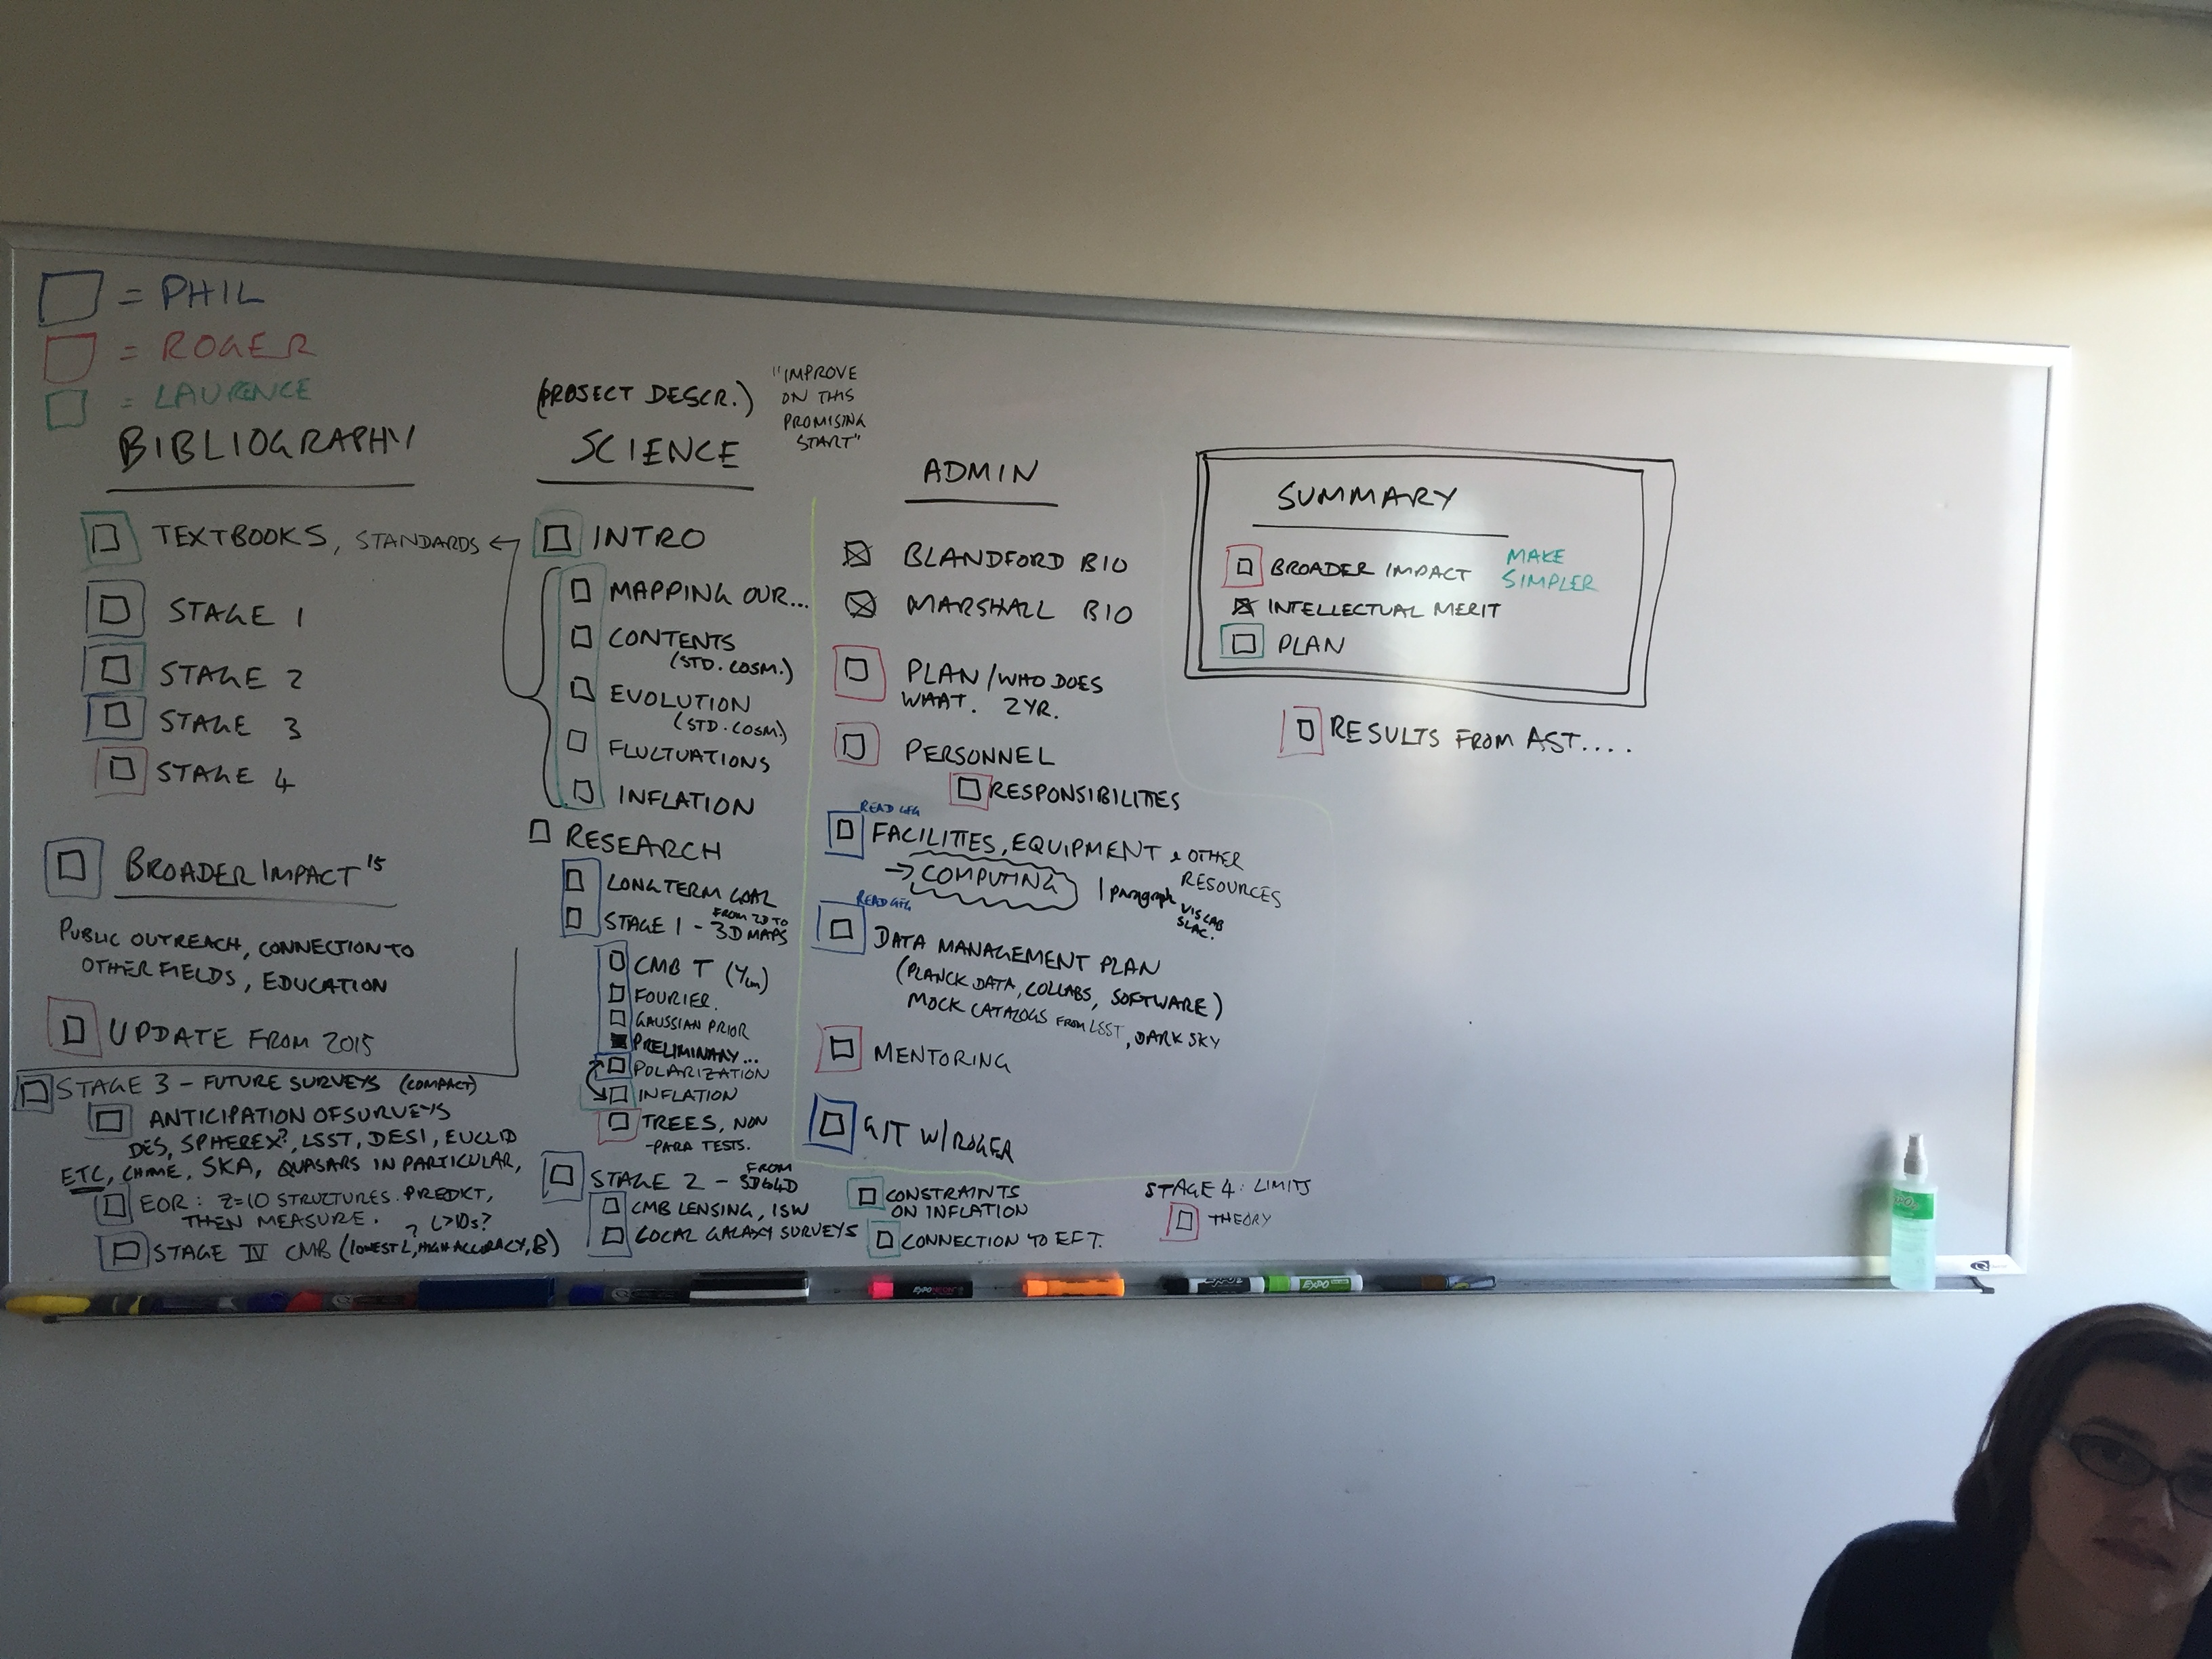 = PHIL
= ROGER
= LAURENCE
BIBLIOGRAPHY
TEXTBOOKS, STANDARDS
STAGE 1
STAGE 2
STAGE 3
STAGE 4
BROADER IMPACT '15
PUBLIC OUTREACH, CONNECTION TO
OTHER FIELDS, EDUCATION
UPDATE FROM 2015
STAGE 3 - FUTURE SURVEYS (COMPACT)
ANTICIPATION OF SURVEYS
DES, SPHEREX?, LSST, DESI, EUCLID
ETC, CHIME, SKA, QUASARS IN PARTICULAR,
EOR: Z=10 STRUCTURES. PREDICT,
THEN MEASURE. ? L>10s?
STAGE IV CMB (LOWEST L, HIGH ACCURACY, B)
(PROJECT DESCR.)
"IMPROVE
ON THIS
PROMISING
START"
SCIENCE
INTRO
MAPPING OUR...
CONTENTS
(STD. COSM.)
EVOLUTION
(STD. COSM.)
FLUCTUATIONS
INFLATION
RESEARCH
LONG TERM GOAL
STAGE 1 - FROM 2D TO
3D MAPS
CMB T (Ylm)
FOURIER
GAUSSIAN PRIOR
PRELIMINARY...
POLARIZATION
INFLATION
TREES, NON
-PARA TESTS.
STAGE 2 - FROM
3D to 4D
CMB LENSING, ISW
LOCAL GALAXY SURVEYS
ADMIN
BLANDFORD BIO
MARSHALL BIO
PLAN/WHO DOES
WHAT. 2YR.
PERSONNEL
RESPONSIBILITIES
READ GPG
FACILITIES, EQUIPMENT & OTHER
RESOURCES
→ COMPUTING
1 paragraph
VISLAB
SLAC.
READ GPG
DATA MANAGEMENT PLAN
(PLANCK DATA, COLLABS, SOFTWARE)
MOCK CATALOGS FROM LSST, DARK SKY
MENTORING
GIT W/ROGER
CONSTRAINTS
ON INFLATION
CONNECTION TO EFT.
STAGE 4: LIMITS
THEORY
SUMMARY
BROADER IMPACT
MAKE
SIMPLER
INTELLECTUAL MERIT
PLAN
RESULTS FROM AST....
EXPO
EXPO
EXPO